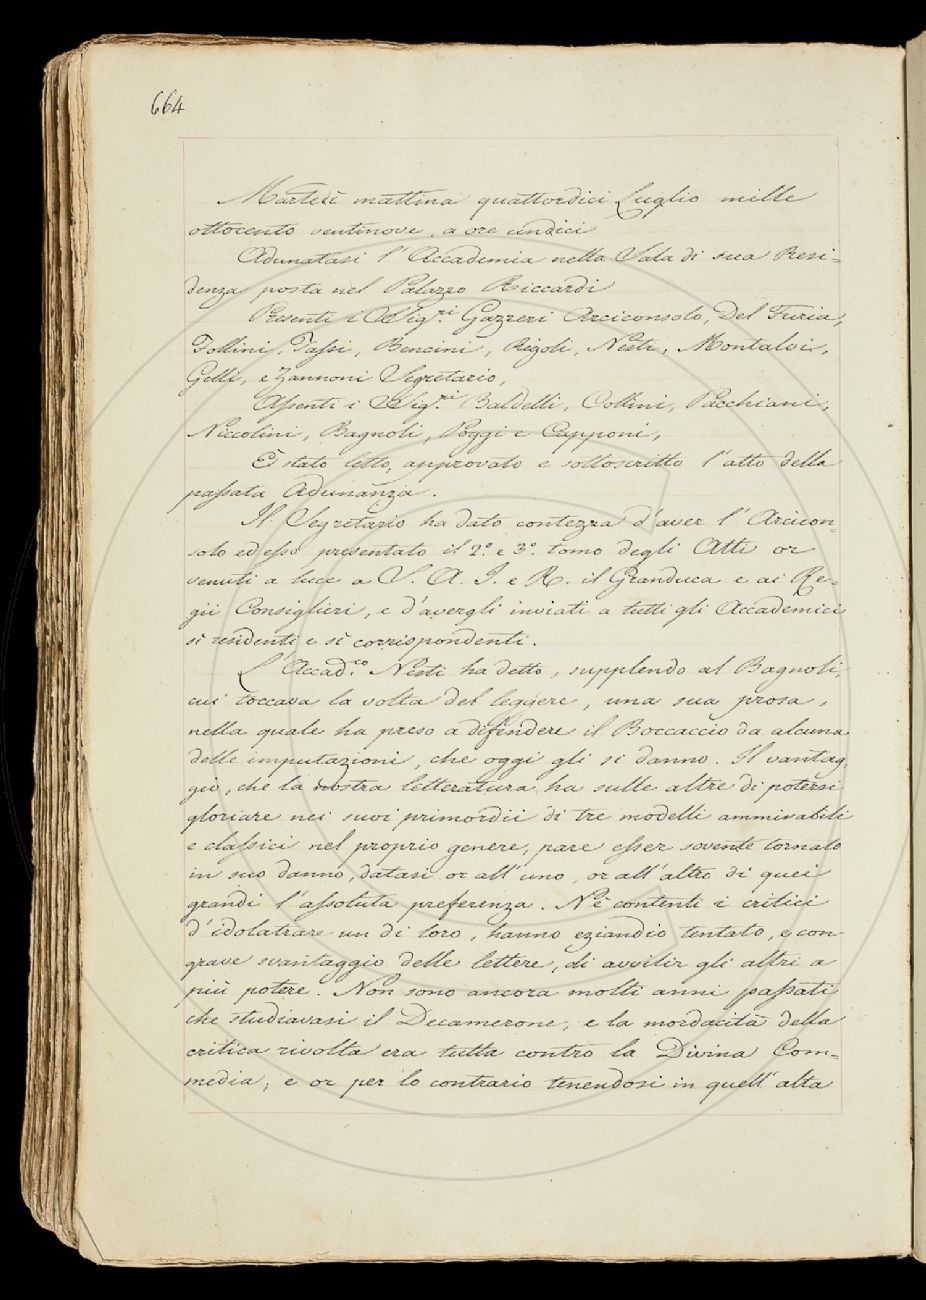 664
Martedì mattina quattordici Luglio mille
ottocento ventinove, a ore undici
Adunatasi l'Accademia nella Sala di sua Resi=
denza posta nel Palazzo Riccardi
Presenti i Sigri. Gazzeri Arciconsolo, Del Furia,
Follini, Tassi, Bencini, Rigoli, Nesti, Montalvi,
Gelli, e Zannoni Segretario,
Assenti i Sigri. Baldelli, Collini, Pacchiani,
Niccolini, Bagnoli, Poggi e Capponi,
È stato letto, approvato e sottoscritto l'atto della
passata Adunanza.
Il Segretario ha dato contezza d'aver l'Arcicon=
solo ed esso presentato il 2º. e 3º. tomo degli Atti or
venuti a luce a S. A. I. e R. il Granduca e ai Re=
gii Consiglieri, e d'avergli inviati a tutti gli Accademici
sì residenti e sì corrispondenti.
L'Accadco. Nesti ha detto, supplendo al Bagnoli,
cui toccava la volta del leggere, una sua prosa,
nella quale ha preso a difendere il Boccaccio da alcuna
delle imputazioni, che oggi gli si danno. Il vantag=
gio, che la nostra letteratura ha sulle altre di potersi
gloriare nei suoi primordii di tre modelli ammirabili
e classici nel proprio genere, pare esser sovente tornato
in suo danno, datasi or all'uno, or all'altro di quei
grandi l'assoluta preferenza. Nè contenti i critici
d'idolatrare un di loro, hanno eziandio tentato, e con
grave svantaggio delle lettere, di avvilir gli altri a
più potere. Non sono ancora molti anni passati
che studiavasi il Decamerone, e la mordacità della
critica rivolta era tutta contro la Divina Com=
media, e or per lo contrario tenendosi in quell'alta